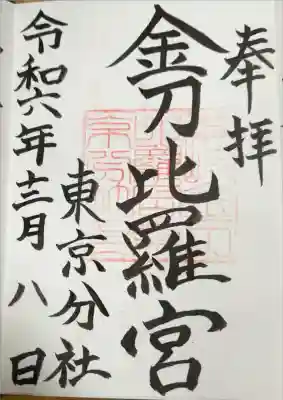 奉拝
金刀比羅宮
東京分社
令和六年十二月八日